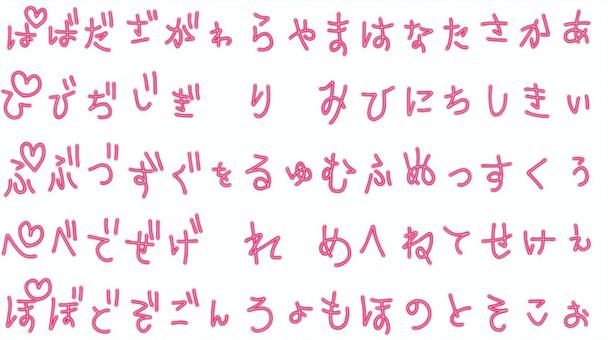 ぱ ば だ ざ が わ ら や ま は な た さ か あ
ぴ び ぢ じ ぎ り み ひ に ち し き い
ぷ ぶ づ ず ぐ を る ゆ む ふ ぬ つ す く う
ぺ べ で ぜ げ れ め へ ね て せ け え
ぽ ぼ ど ぞ ご ん ろ よ も ほ の と そ こ お